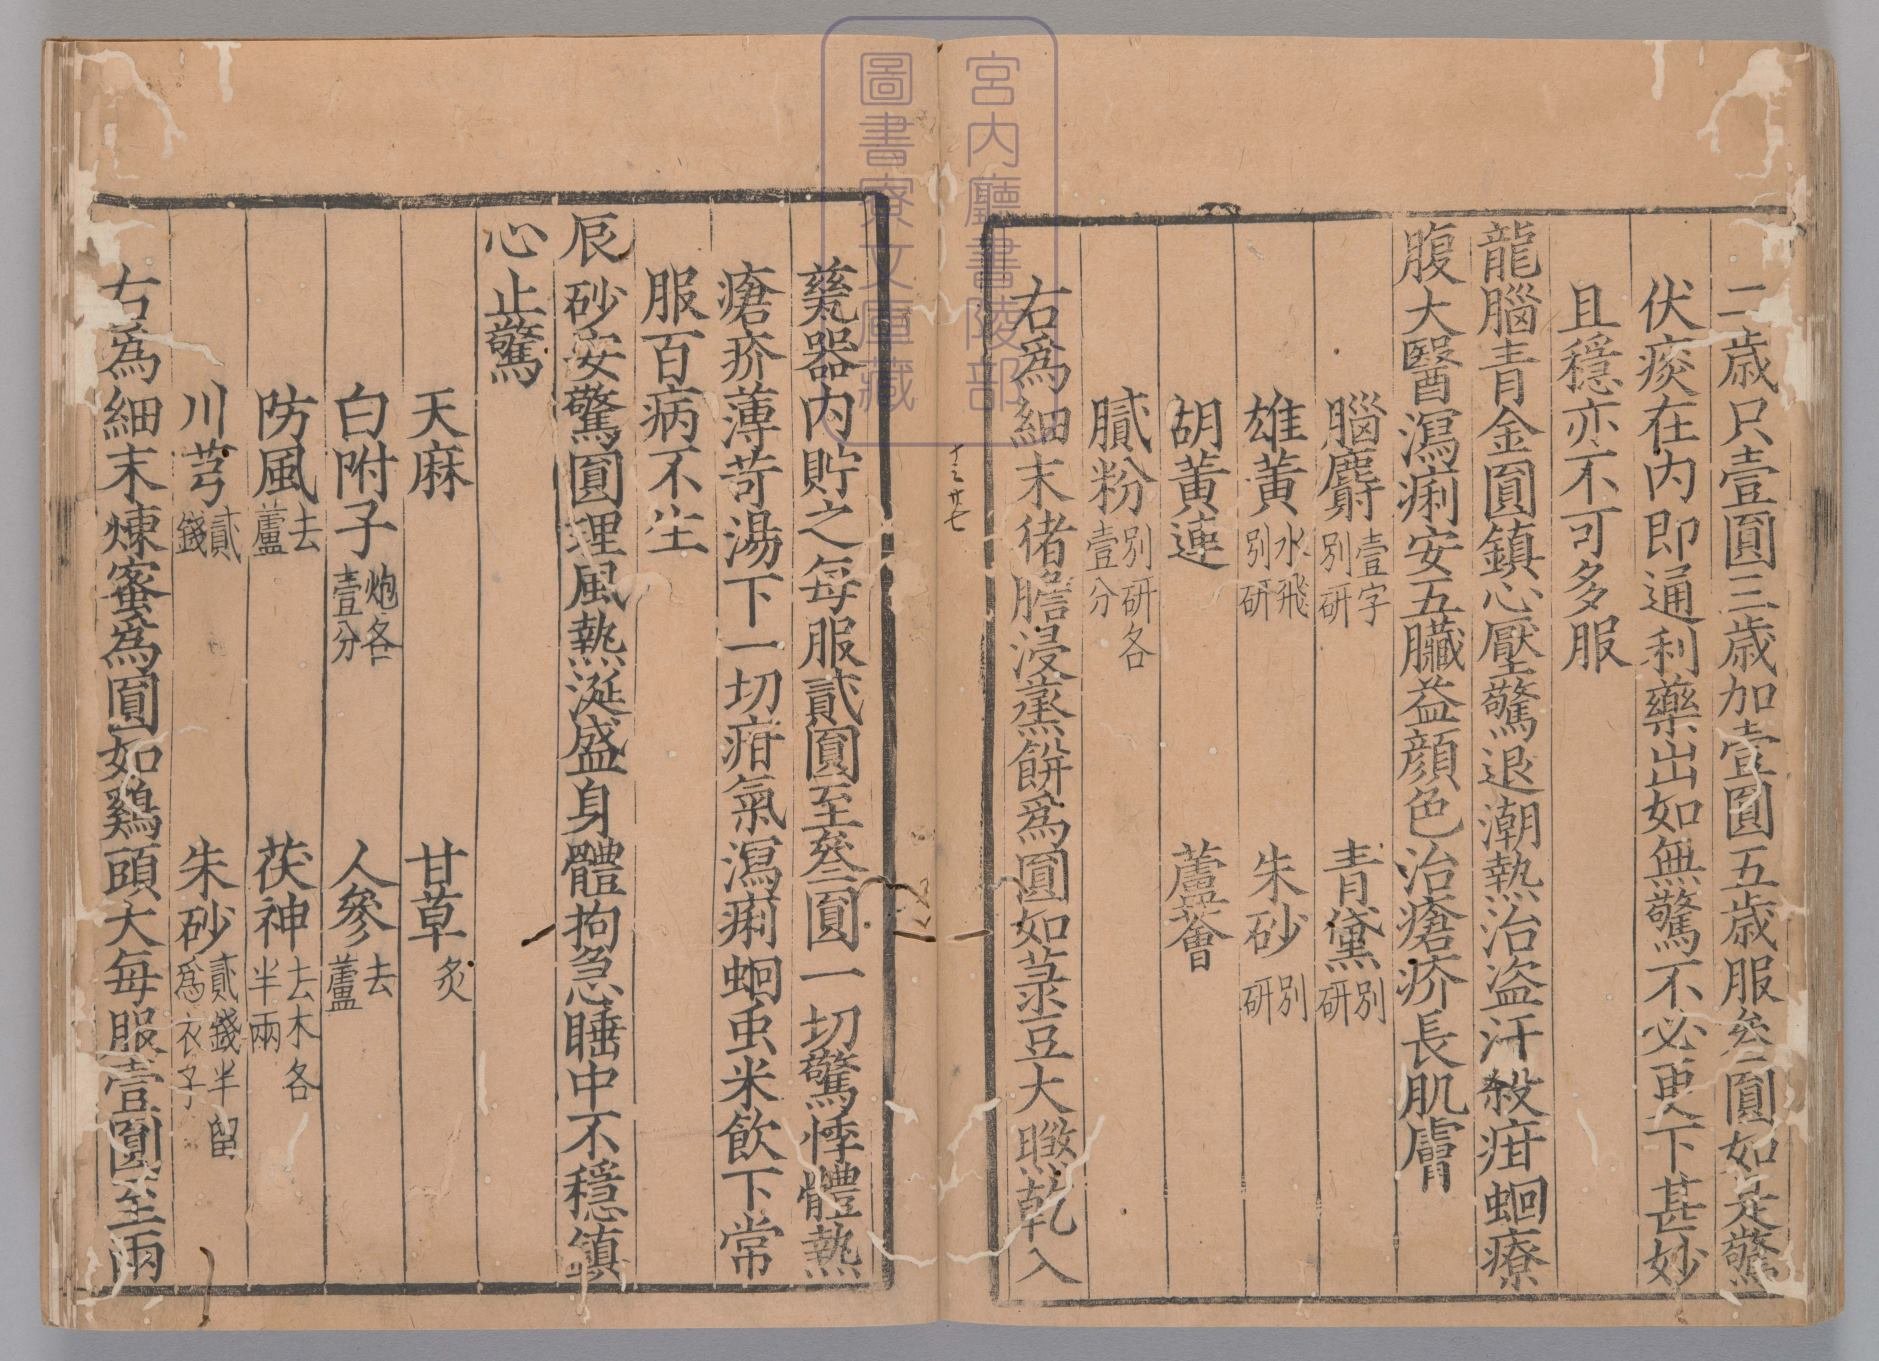 二歲只壹圓三歲加壹圓五歲服叁圓如是驚
伏痰在内即通利藥出如無驚不必更下甚妙
且穩亦不可多服
龍腦青金圓鎮心壓驚退潮熱治盜汗殺疳蛔療
腹大醫瀉痢安五臟益顏色治瘡疥長肌膚
腦麝壹字別研 青黛別研
雄黃水飛別研 朱砂別研
胡黃連 蘆薈
膩粉別研各壹分
右爲細末猪膽浸蒸餅爲圓如菉豆大㬠乾入
甆器内貯之每服貳圓至叁圓一切驚悸體熱
瘡疥薄荷湯下一切疳氣瀉痢蛔虫米飲下常
服百病不生
辰砂安驚圓理風熱涎盛身體拘急睡中不穩鎮
心止驚
天麻 甘草炙
白附子炮各壹分 人參去蘆
防風去蘆 茯神去木各半兩
川芎貳錢 朱砂貳錢半留爲衣子
右爲細末煉蜜爲圓如鷄頭大每服壹圓至兩
十三 廿七
宮内廳書陵部
圖書寮文庫藏